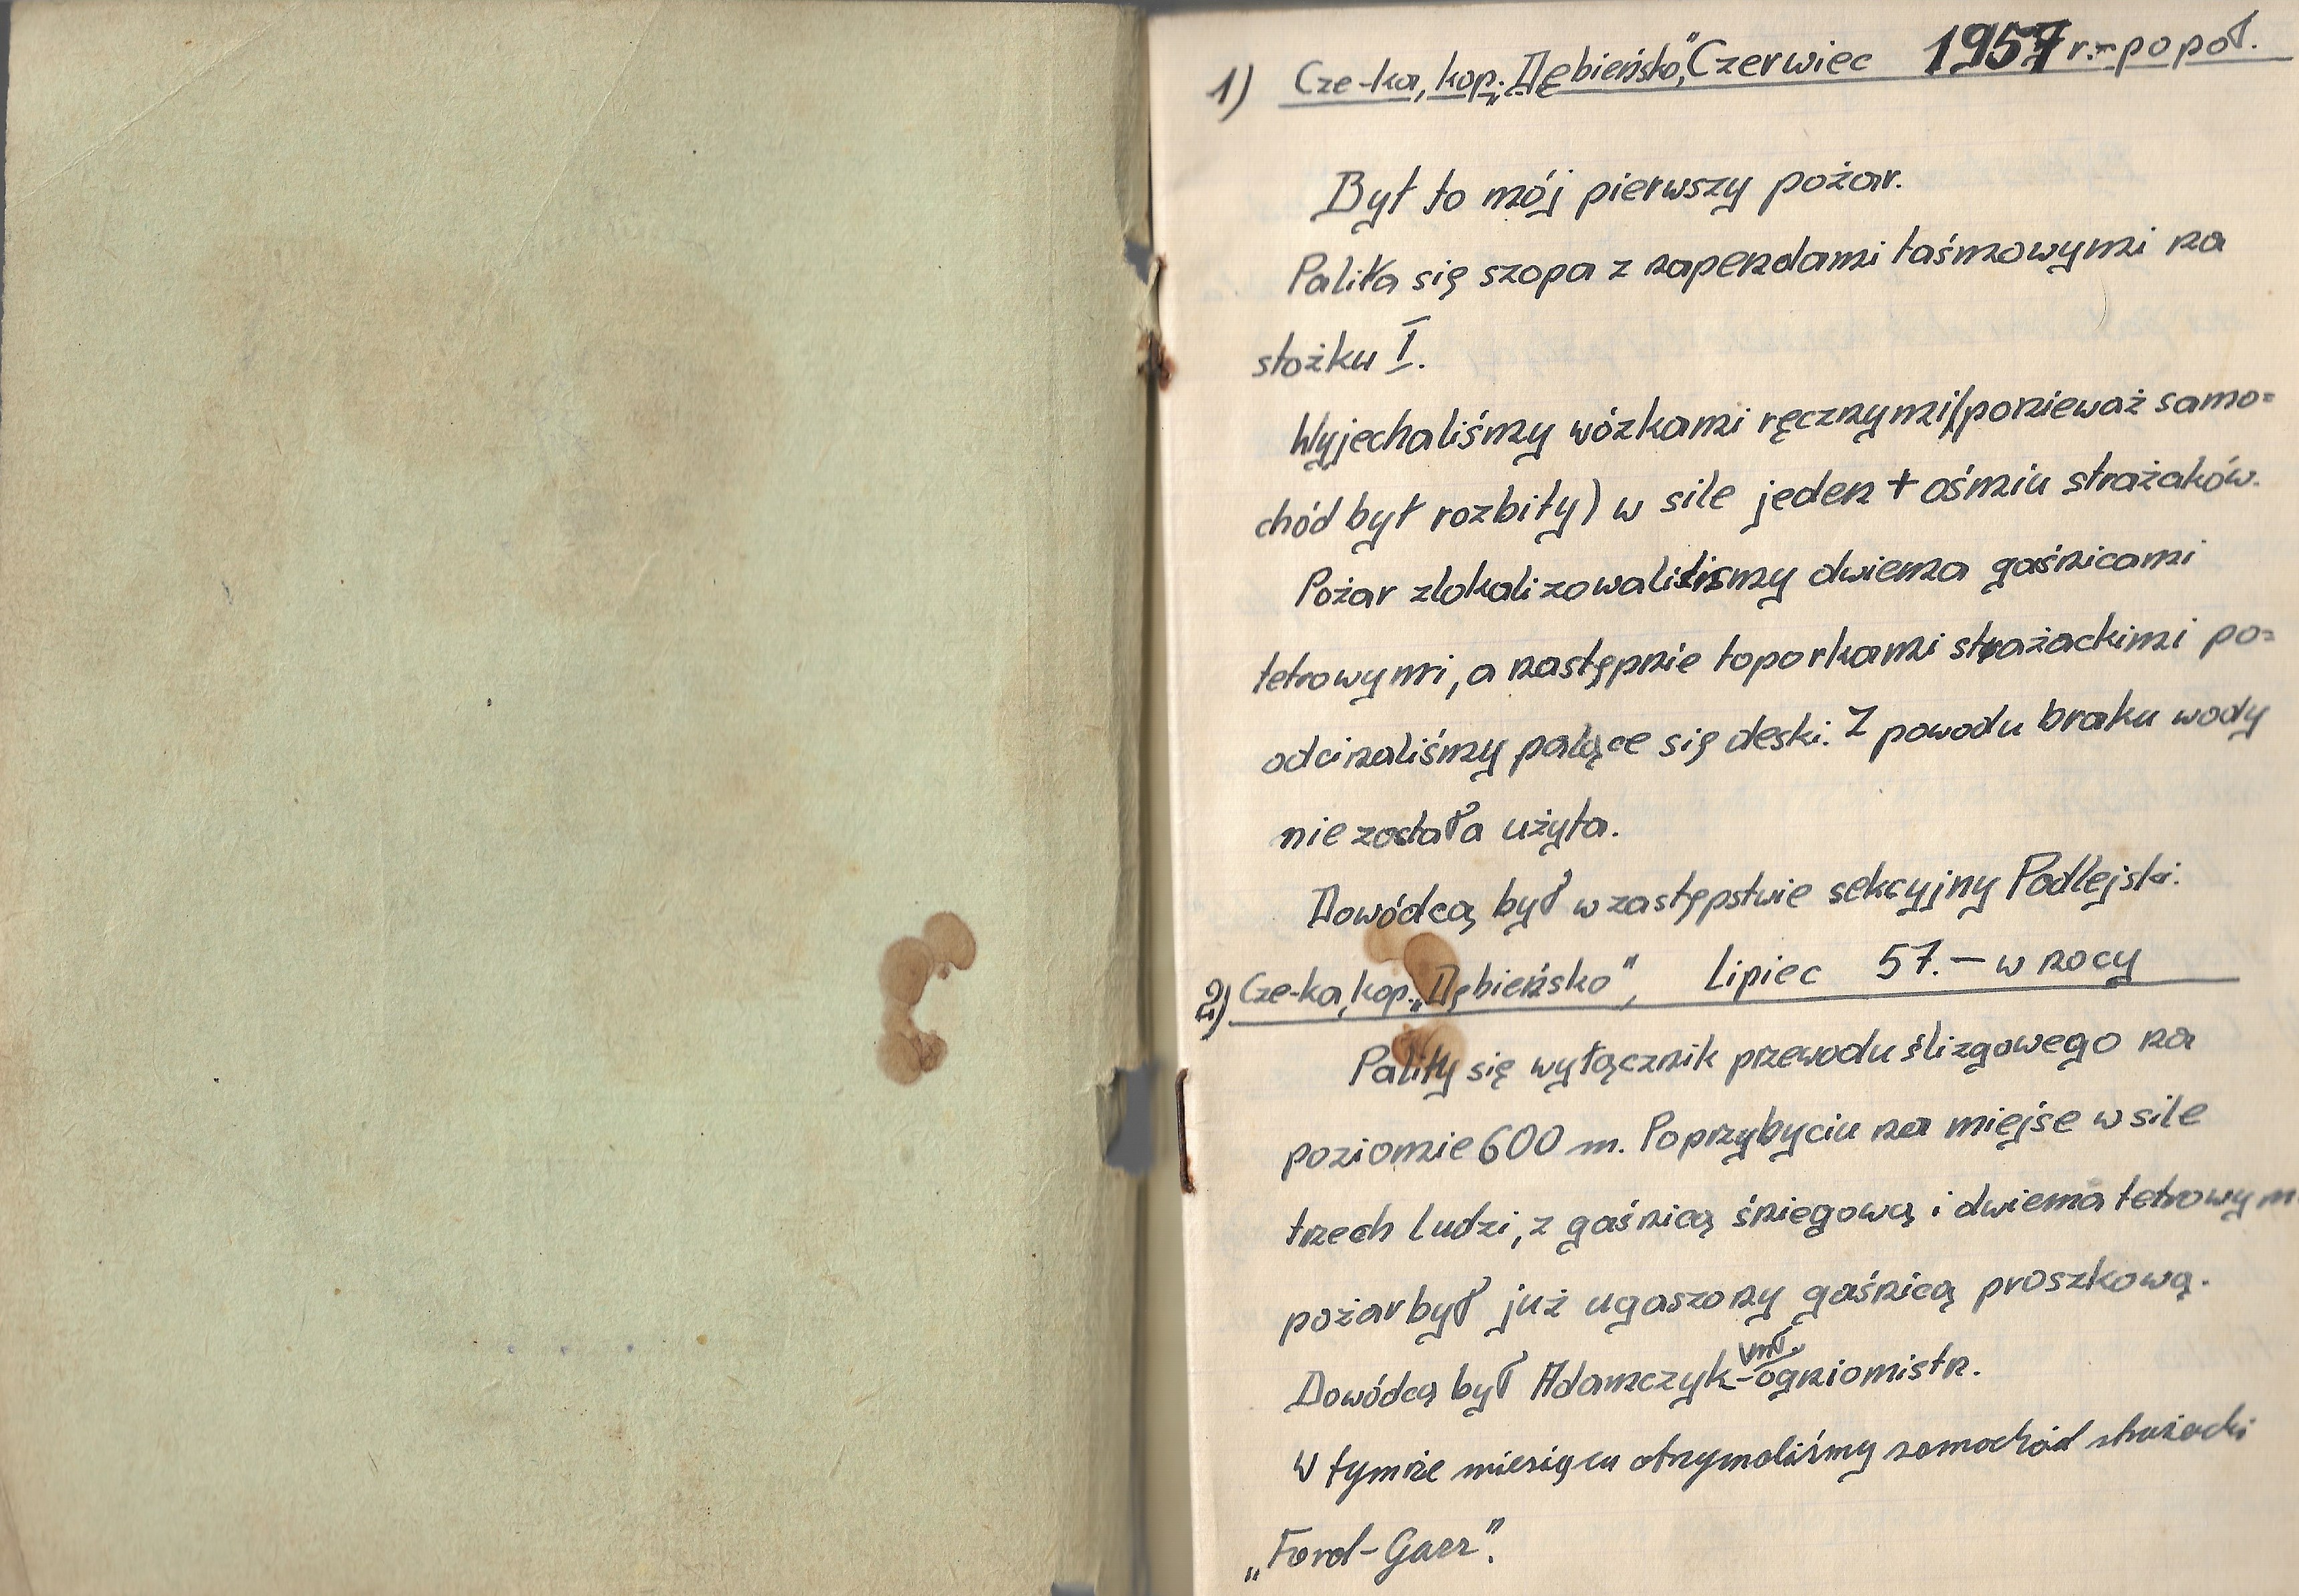 1) Cze-ka, kop. „Dębieńsko", Czerwiec 1957 r.- popoł.
Był to mój pierwszy pożar.
Paliła się szopa z napendami taśmowymi na
stożku I.
Wyjechaliśmy wózkami ręcznymi (ponieważ samo=
chód był rozbity) w sile jeden + ośmiu strażaków.
Pożar zlokalizowaliśmy dwiema gaśnicami
tetrowymi, a następnie toporkami strażackimi po=
odcinaliśmy palące się deski. Z powodu braku wody
nie została użyta.
Dowódcą był w zastępstwie sekcyjny Podlejski.
2) Cze-ka, kop. „Dębieńsko", Lipiec 57. – w nocy
Palił się wyłącznik przewodu ślizgowego na
poziomie 600 m. Po przybyciu na miejsce w sile
trzech ludzi, z gaśnicą śniegową i dwiema tetrowym
pożar był już ugaszony gaśnicą proszkową.
Dowódcą był Adamczyk - mł. ogniomistrz.
W tymże miesiącu otrzymaliśmy samochód strażacki
„Ford-